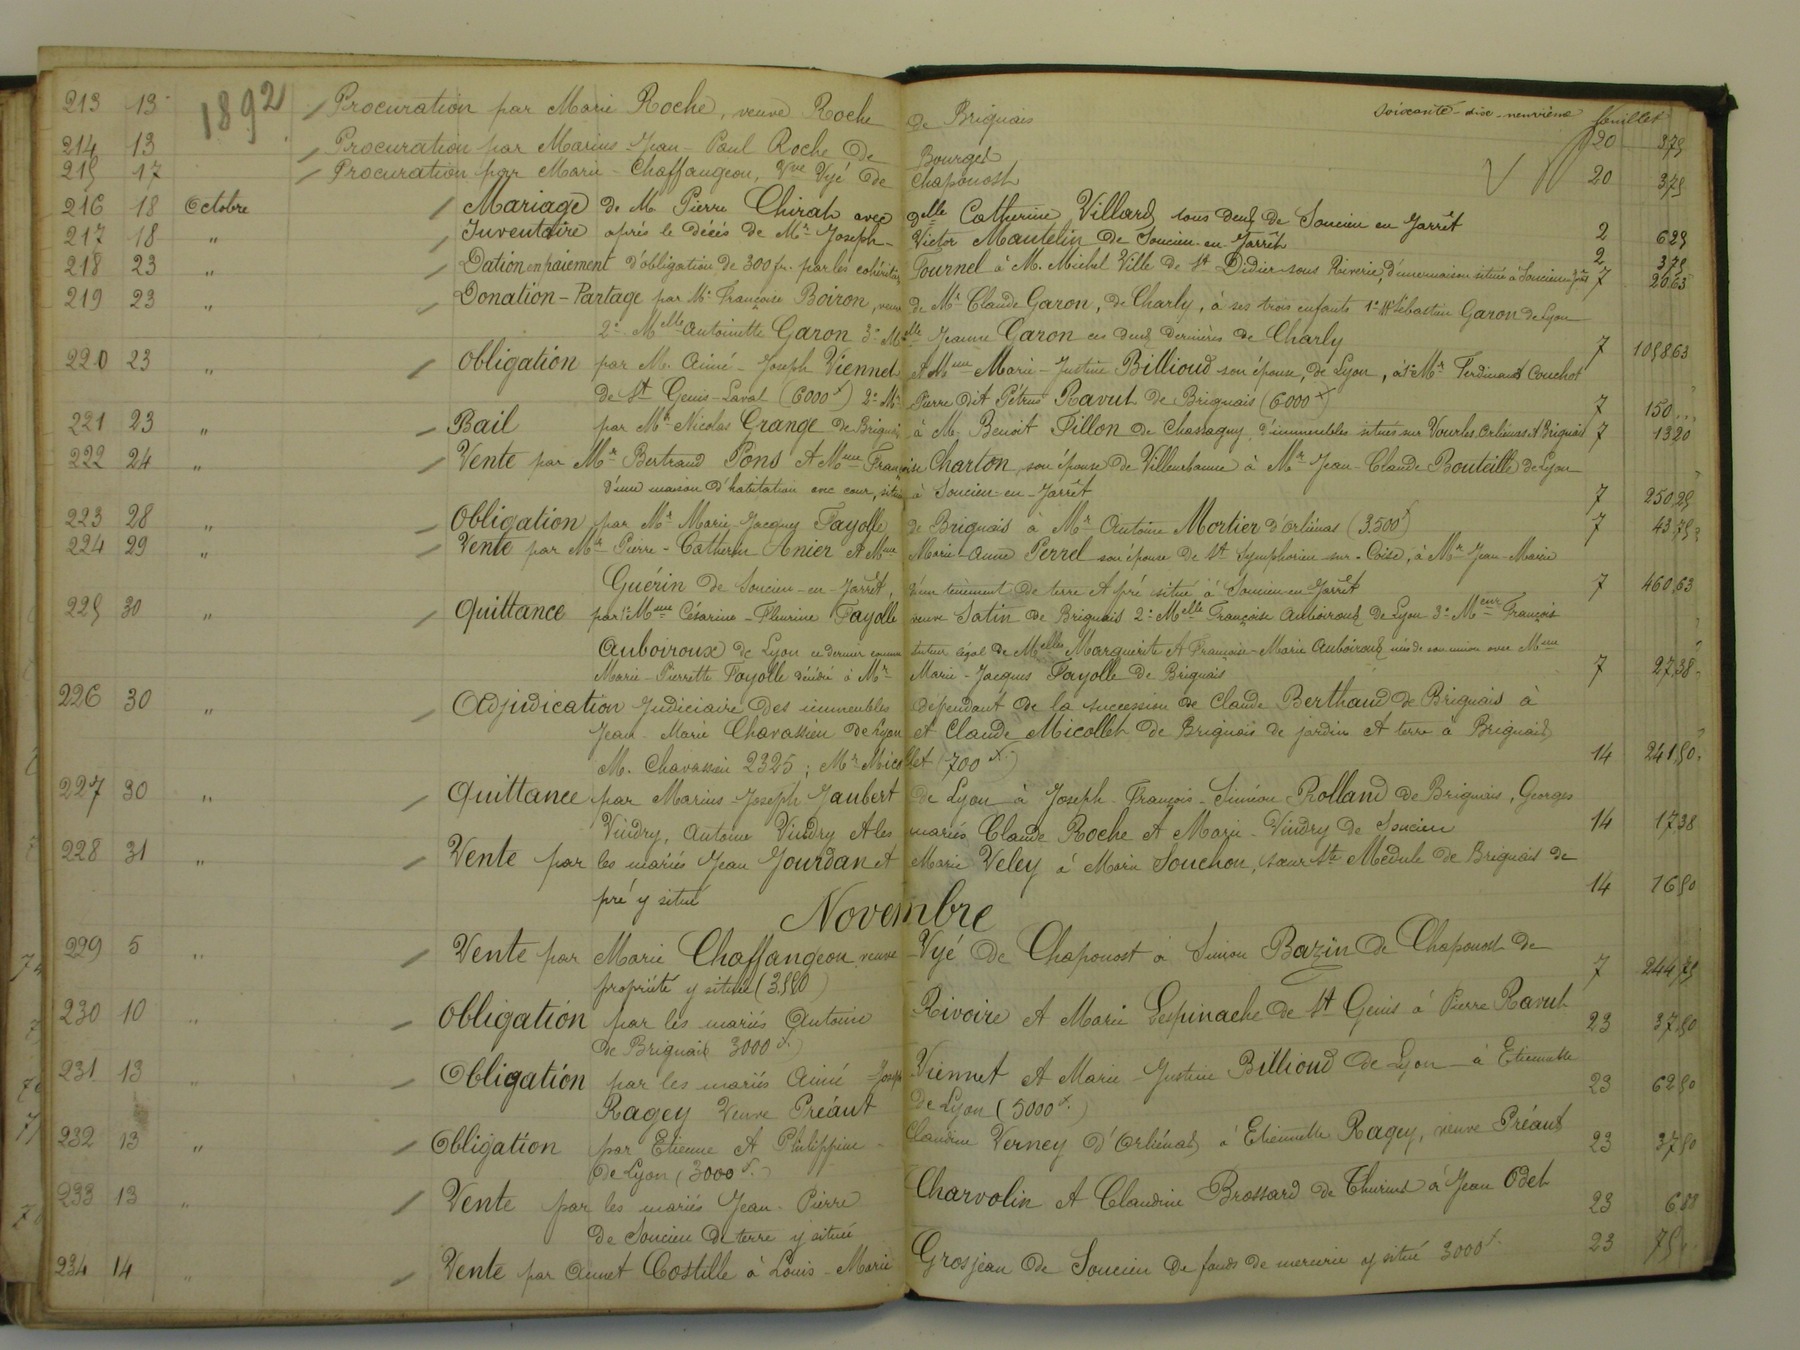 soixante-dix-neuvième feuillet
1892
213 13 Procuration par Marie Roche, veuve Roche de Brignais 20 3,75
214 13 Procuration par Marius-Jean-Paul Roche de Bourget
215 17 Procuration par Marie-Chaffangeon, Vve Vyé de Chaponost 20 3,75
216 18 Octobre Mariage de M. Pierre Chirat avec Delle Catherine Villard tous deux de Soucieu en Jarrêt 2 6 25
217 18 " Inventaire après le décès de Mr Joseph-Victor Mantelin de Soucieu-en-Jarrêt 2 3 75
218 23 " Dation en paiement d'obligation de 300 fr. par les cohéritiers Fournel à M. Michel Ville de St Didier-sous Riverie, d'une maison située à Soucieu 7 20 63
219 23 " Donation-Partage par Me Françoise Boiron, veuve de Mr Claude Garon, de Charly, à ses trois enfants 1° Mr Sébastien Garon de Lyon
2° Melle Antoinette Garon 3° Melle Jeanne Garon ces deux dernières de Charly 7 1058 63
220 23 " Obligation par M. Aimé-Joseph Viennet et Mme Marie-Justine Billioud son épouse, de Lyon, à 1° Mr Ferdinand Couchot
de St Genis-Laval (6000 f) 2° Mr Pierre dit Pétrus Ravut de Brignais (6000 f) 7 150
221 23 " Bail par Mr Nicolas Grange de Brignais à M. Benoit Fillon de Chassagny d'immeubles situés sur Vourles, Orliénas et Brignais 7 13 20
222 24 " Vente par Mr Bertrand Pons et Mme Françoise Charton, son épouse de Villeurbanne à Mr Jean-Claude Bouteille de Lyon
d'une maison d'habitation avec cour, située à Soucieu-en-Jarrêt 7 250 25
223 28 " Obligation par Mr Marie Jacques Fayolle de Brignais à Mr Antoine Mortier d'Orliénas (3.500 f) 7 43 75
224 29 " Vente par Mr Pierre-Catherin Anier et Mme Marie-Anne Perret son épouse de St Symphorien-sur-Coise, à Mr Jean-Marie
Guérin de Soucieu-en-Jarrêt, d'un tènement de terre et pré situé à Soucieu-en-Jarrêt 7 460 63
225 30 " Quittance par 1° Mme Césarine-Fleurine Fayolle veuve Satin de Brignais 2° Melle Françoise Auboiroux de Lyon 3° François
Auboiroux de Lyon ce dernier comme tuteur légal de Melles Marguerite et Françoise-Marie Auboiroux nées de son union avec Mme
Marie-Pierrette Fayolle décédée à Mr Marie-Jacques Fayolle de Brignais 7 27 38
226 30 " Adjudication Judiciaire des immeubles dépendant de la succession de Claude Berthaud de Brignais à
Jean-Marie Chavassieu de Lyon et Claude Micollet de Brignais de jardin et terre à Brignais
M. Chavassieu 2325 ; Mr Micollet (700 f.) 14 241 50
227 30 " Quittance par Marius Joseph Jaubert de Lyon à Joseph-François-Siméon Rolland de Brignais, Georges
Vindry, Antoine Vindry et les mariés Claude Roche et Marie-Vindry de Soucieu 14 17 38
228 31 " Vente par les mariés Jean Jourdan et Marie Veley à Marie Souchon, sœur Ste Médule de Brignais de
pré y situé 14 16 50
Novembre
229 5 " Vente par Marie Chaffangeon veuve Vyé de Chaponost à Simon Bazin de Chaponost de
propriété y située 7 244 75
230 10 " Obligation par les mariés Antoine Rivoire et Marie Lespinache de St Genis à Pierre Ravut
de Brignais 3000 f.) 23 37 50
231 13 " Obligation par les mariés Aimé-Joseph Viennet et Marie-Justine Billioud de Lyon à Etiennette
Ragey Veuve Préaut de Lyon (5000 f.) 23 62 50
232 13 " Obligation par Etienne et Philippine-Claudine Verney d'Orliénas à Etiennette Ragey, veuve Préaut
de Lyon (3000 f.) 23 37 50
233 13 " Vente par les mariés Jean-Pierre Charvolin et Claudine Brossard de Thurins à Jean Odet
de Soucieu de terre y située 23 6.88
234 14 " Vente par Annet Costille à Louis-Marie Grosjean de Soucieu de fonds de mercerie y situé 3000 f. 23 75